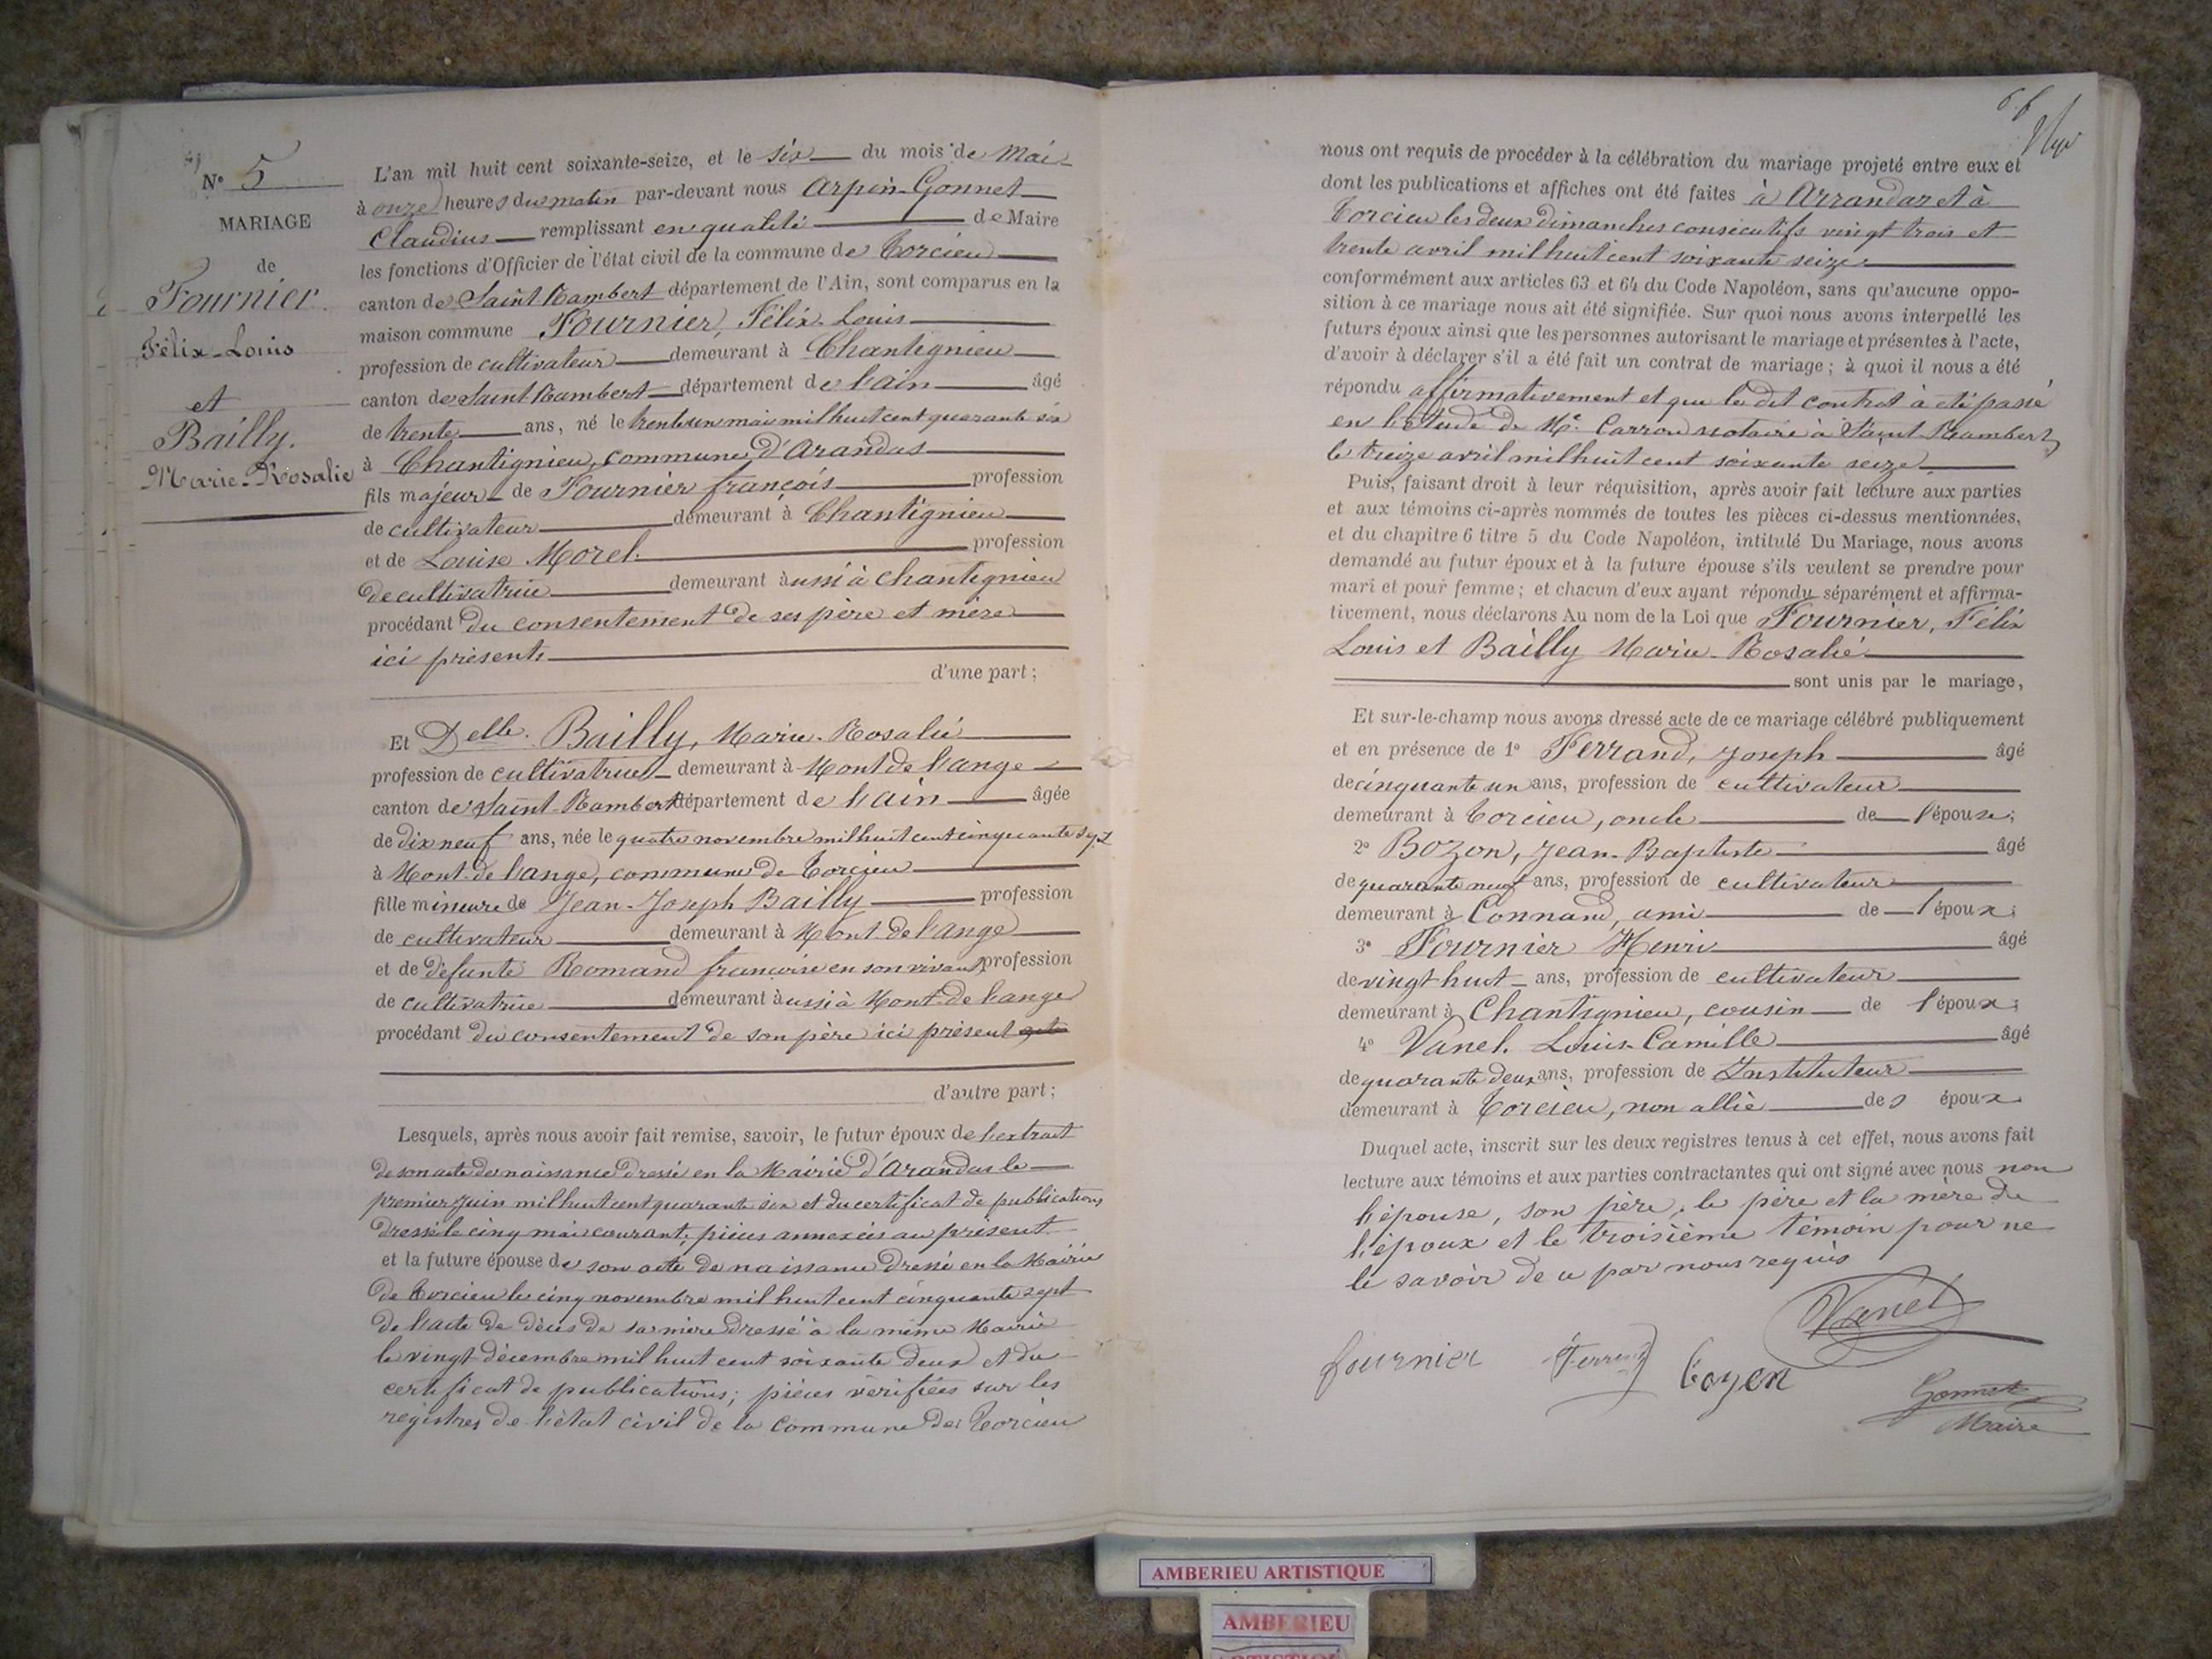 N° 5
MARIAGE
de
Fournier
Félix-Louis
et
Bailly.
Marie-Rosalie
L'an mil huit cent soixante-seize, et le six du mois de Mai
à onze heures du matin par-devant nous Arpin-Gonnet
Claudius remplissant en qualité de Maire
les fonctions d'Officier de l'état civil de la commune de Torcieu
canton de Saint Rambert département de l'Ain, sont comparus en la
maison commune Fournier, Félix-Louis
profession de cultivateur demeurant à Chantignieu
canton de Saint Rambert département de l'ain âgé
de trente ans, né le trente un mai mil huit cent quarante six
à Chantignieu, commune d'Arandas
fils majeur de Fournier françois profession
de cultivateur demeurant à Chantignieu
et de Louise Morel profession
de cultivatrice demeurant aussi à Chantignieu
procédant du consentement de ses père et mère
ici présents
d'une part;
Et Delle. Bailly, Marie-Rosalie
profession de cultivatrice demeurant à Mont de l'ange
canton de Saint-Rambert département de l'ain âgée
de dix neuf ans, née le quatre novembre mil huit cent cinquante sept
à Mont-de l'ange, commune de Torcieu
fille mineure de Jean-Joseph Bailly profession
de cultivateur demeurant à Mont de l'ange
et de défunte Romand françoise en son vivant profession
de cultivatrice demeurant aussi à Mont-de l'ange
procédant du consentement de son père ici présent
d'autre part;
Lesquels, après nous avoir fait remise, savoir, le futur époux de l'extrait
de son acte de naissance dressé en la Mairie d'Arandas le
premier Juin mil huit cent quarante six et du certificat de publications
dressé le cinq mai courant, pièces annexées au présent
et la future épouse de son acte de naissance dressé en la Mairie
de Torcieu le cinq novembre mil huit cent cinquante sept
de l'acte de décès de sa mère dressé à la même Mairie
le vingt décembre mil huit cent soixante deux et du
certificat de publications; pièces vérifiées sur les
registres de l'état civil de la commune de Torcieu
nous ont requis de procéder à la célébration du mariage projeté entre eux et
dont les publications et affiches ont été faites à Arrandas et à
Torcieu les deux dimanches consécutifs vingt trois et
trente avril mil huit cent soixante seize
conformément aux articles 63 et 64 du Code Napoléon, sans qu'aucune oppo-
sition à ce mariage nous ait été signifiée. Sur quoi nous avons interpellé les
futurs époux ainsi que les personnes autorisant le mariage et présentes à l'acte,
d'avoir à déclarer s'il a été fait un contrat de mariage; à quoi il nous a été
répondu affirmativement et que le dit contrat à été passé
en l'étude de Me. Carron notaire à Saint Rambert
le treize avril mil huit cent soixante seize
Puis, faisant droit à leur réquisition, après avoir fait lecture aux parties
et aux témoins ci-après nommés de toutes les pièces ci-dessus mentionnées,
et du chapitre 6 titre 5 du Code Napoléon, intitulé Du Mariage, nous avons
demandé au futur époux et à la future épouse s'ils veulent se prendre pour
mari et pour femme; et chacun d'eux ayant répondu séparément et affirma-
tivement, nous déclarons Au nom de la Loi que Fournier, Félix
Louis et Bailly Marie-Rosalie
sont unis par le mariage,
Et sur-le-champ nous avons dressé acte de ce mariage célébré publiquement
et en présence de 1° Ferrand, Joseph âgé
de cinquante un ans, profession de cultivateur
demeurant à Torcieu, oncle de l'épouse;
2° Bozon, Jean-Baptiste âgé
de quarante neuf ans, profession de cultivateur
demeurant à Connand, ami de l'époux;
3° Fournier Henri âgé
de vingt huit ans, profession de cultivateur
demeurant à Chantignieu, cousin de l'époux;
4° Vanel. Louis-Camille âgé
de quarante deux ans, profession de Instituteur
demeurant à Torcieu, non allié des époux
Duquel acte, inscrit sur les deux registres tenus à cet effet, nous avons fait
lecture aux témoins et aux parties contractantes qui ont signé avec nous non
l'épouse, son père, le père et la mère de
l'époux et le troisième témoin pour ne
le savoir de ce par nous requis
Vanel
fournier Ferrand
Gonnet
Maire
AMBERIEU ARTISTIQUE
AMBERIEU
ARTISTIQUE